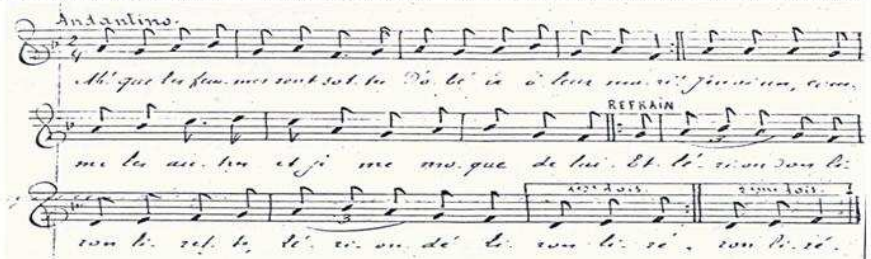 Andantino.
2/4
Ah! que les fem- mes sont sot- tes D'o- bé- ir à leur ma- ri! J'en ai un, com-
REFRAIN
me les au- tres et je me mo- que de lui. Et lé- ri- on don li-
1ère fois. 2ème fois.
ron li- ret- te, lé- ri- on- dé li- ron li- ré, ron li- ré.